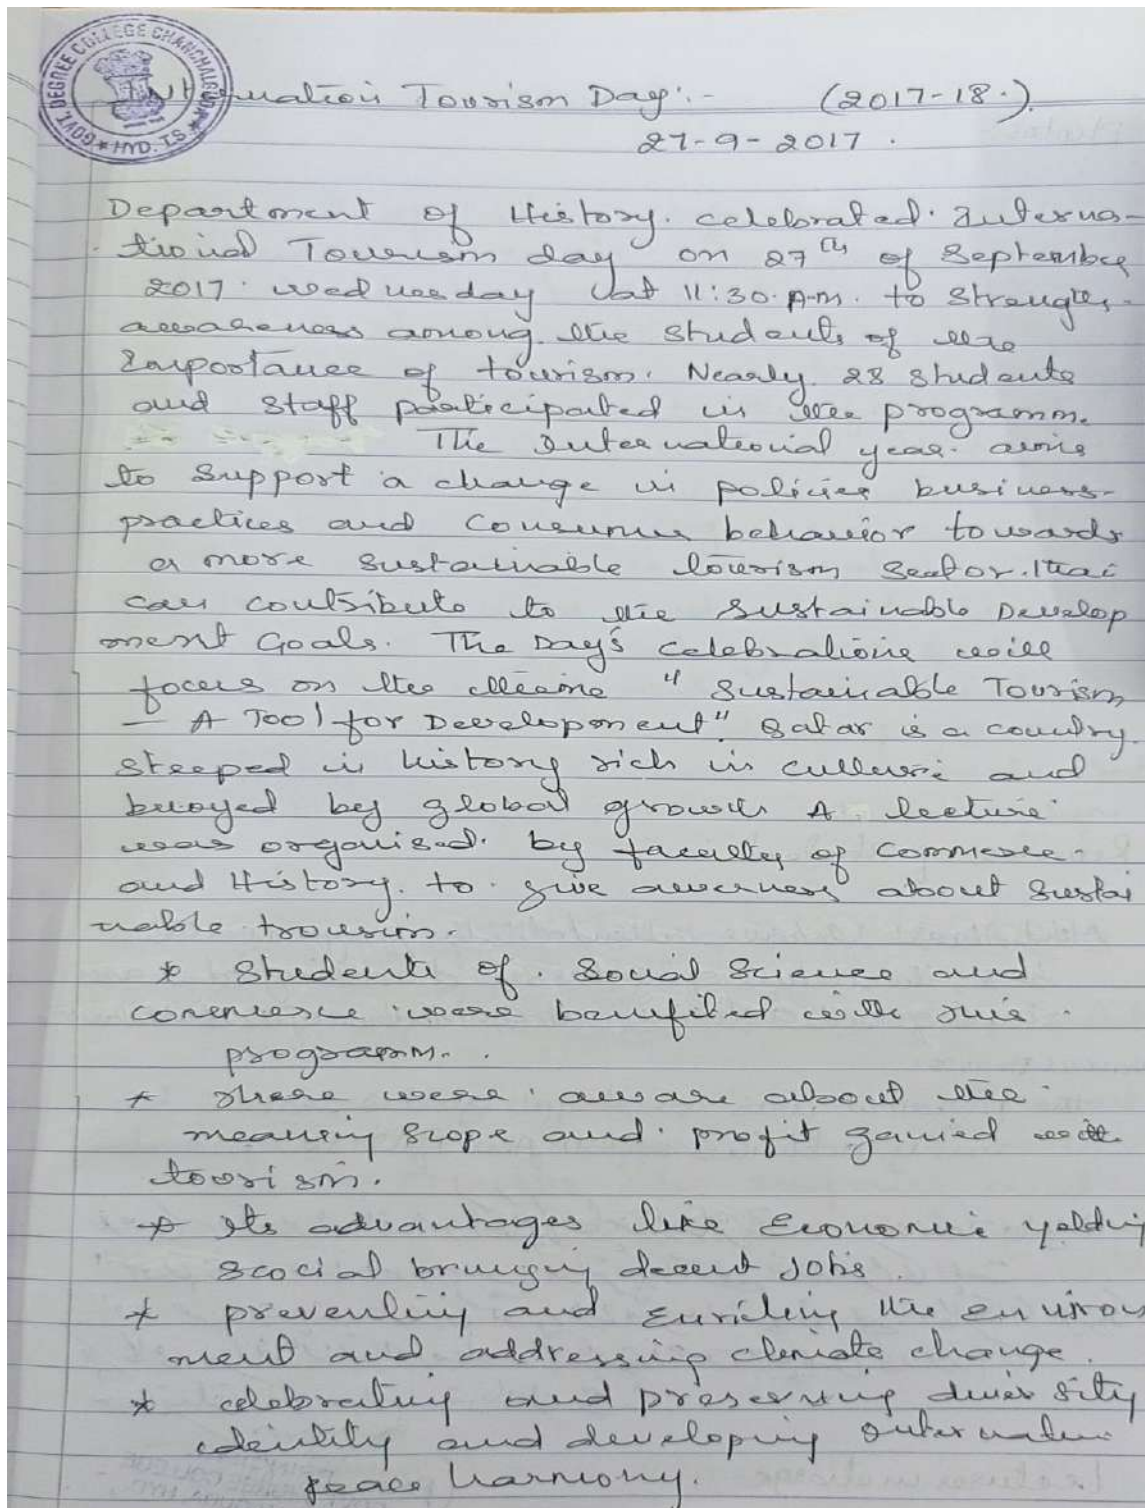 GOVT. DEGREE COLLEGE CHANCHALGUDA
* HYD. T.S *
Tourism Day:- (2017-18.)
27-9-2017.
Department of History. celebrated. Interna-
tional Tourism day on 27th of September
2017. wednesday at 11:30. A.m. to Strengthen
awareness among the students of the
Importance of tourism. Nearly 28 students
and staff participated in the programm.
The International year aims
to support a change in policies business
practices and consumer behavior towards
a more sustainable tourism sector. that
can contribute to the sustainable Develop
ment Goals. The Day's celebrations will
focus on the theme " Sustainable Tourism
- A Tool for Development". Qatar is a country
steeped in history rich in culture and
buoyed by global growth A lecture
was organised. by faculty of commerce
and History. to give awerness about Sustai
nable trousim.
* Students of. Social Science and
commerce were benifited with this
programm.
* There were aware about the
meaning scope and profit ganied with
toorism.
* Its advantages like Economic yeldin
scocial bringing decent Jobs.
* preventing and Enriching the environ
ment and addressing climate change.
* celebrating and preserving diversity
identity and developing
peace harmony.